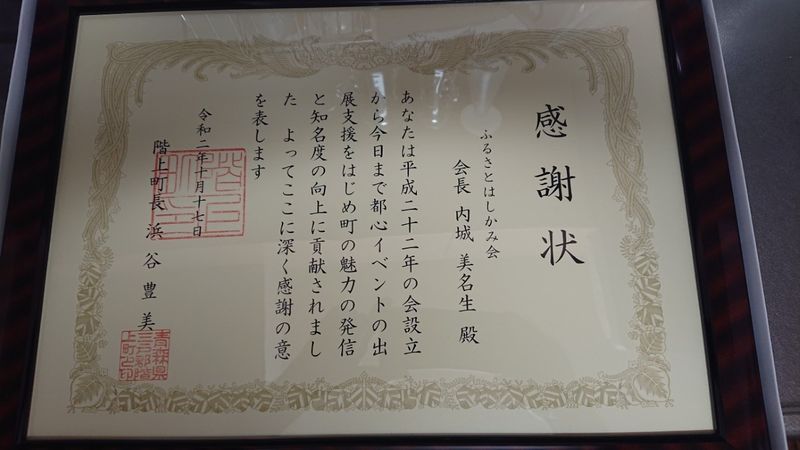 感謝状
ふるさとはしかみ会
会長 内城 美名生 殿
あなたは平成二十二年の会設立
から今日まで都心イベントの出
展支援をはじめ町の魅力の発信
と知名度の向上に貢献されまし
た よってここに深く感謝の意
を表します
令和二年十月十七日
階上町長 浜谷豊美
青森県
三戸郡階
上町之印